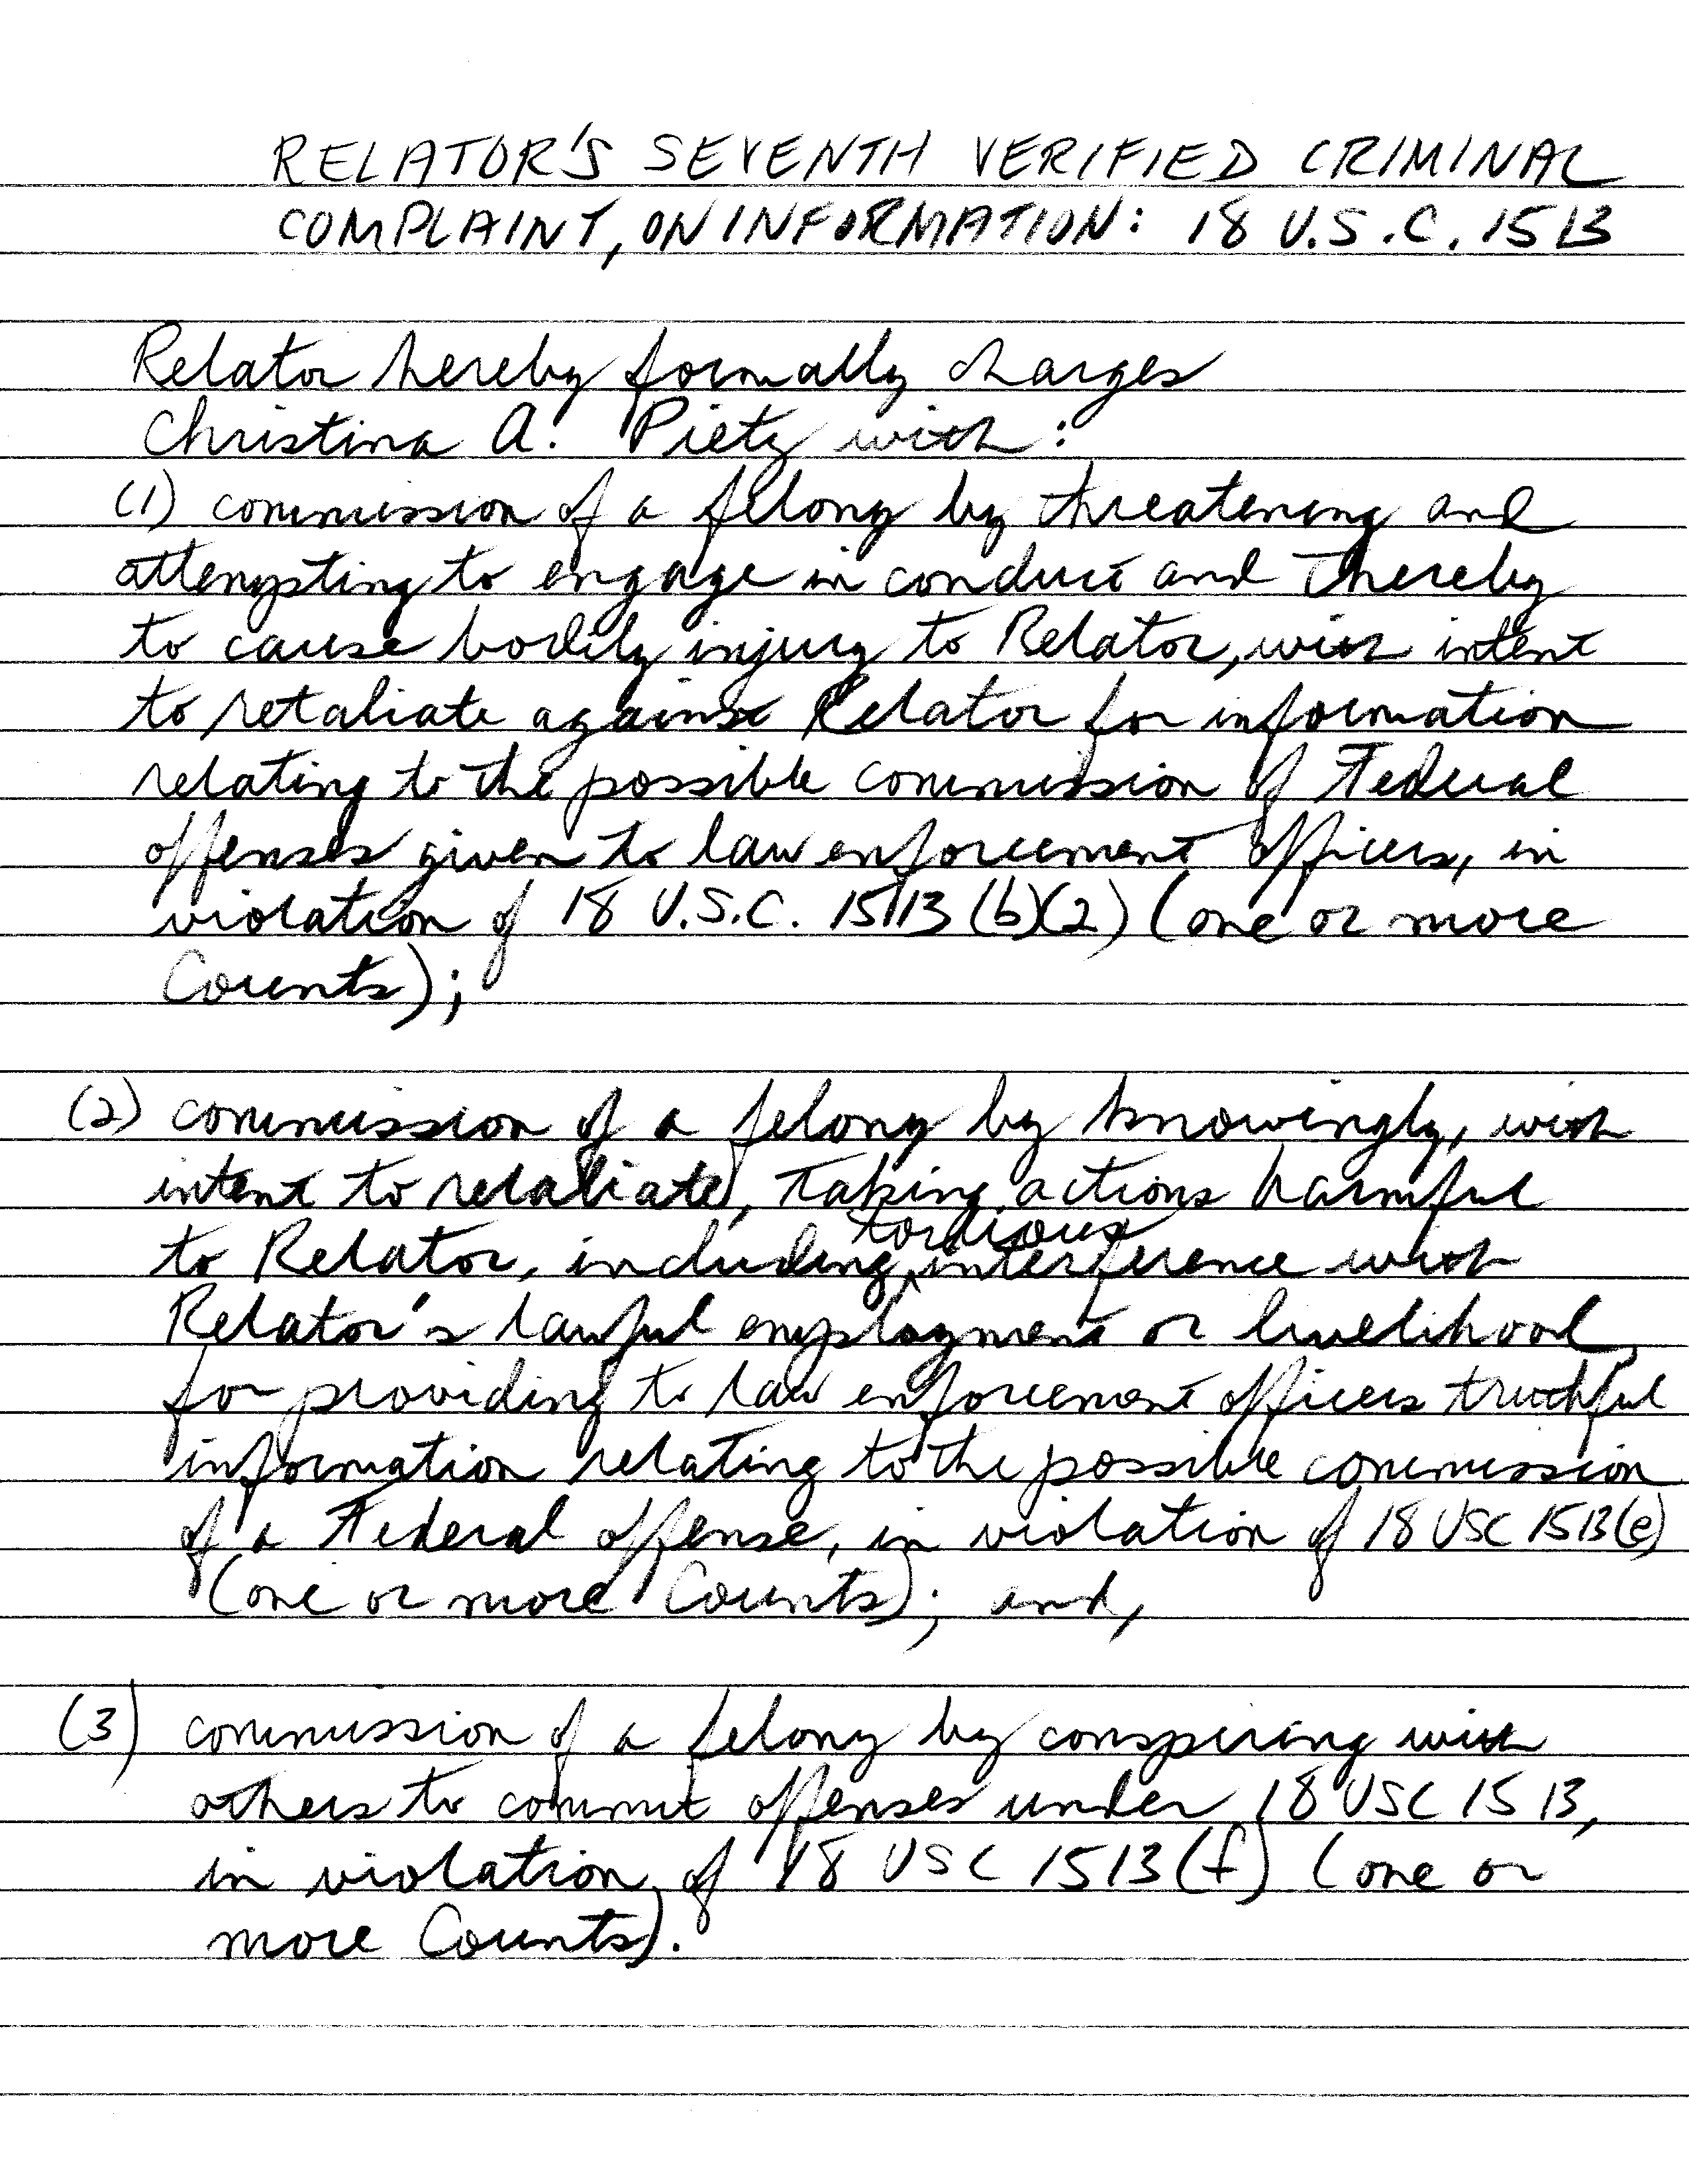 RELATOR'S SEVENTH VERIFIED CRIMINAL
COMPLAINT, ON INFORMATION: 18 U.S.C. 1513
Relator hereby formally charges
Christina A. Pietz with:
(1) commission of a felony by threatening and
attempting to engage in conduct and thereby
to cause bodily injury to Relator, with intent
to retaliate against Relator for information
relating to the possible commission of Federal
offenses given to law enforcement officers, in
violation of 18 U.S.C. 1513(b)(2) (one or more
Counts);
(2) commission of a felony by knowingly, with
intent to retaliate, taking actions harmful
to Relator, including tortious interference with
Relator's lawful employment or livelihood,
for providing to law enforcement officers truthful
information relating to the possible commission
of a Federal offense, in violation of 18 USC 1513(e)
(one or more Counts); and,
(3) commission of a felony by conspiring with
others to commit offenses under 18 USC 1513,
in violation of 18 USC 1513(f) (one or
more Counts).